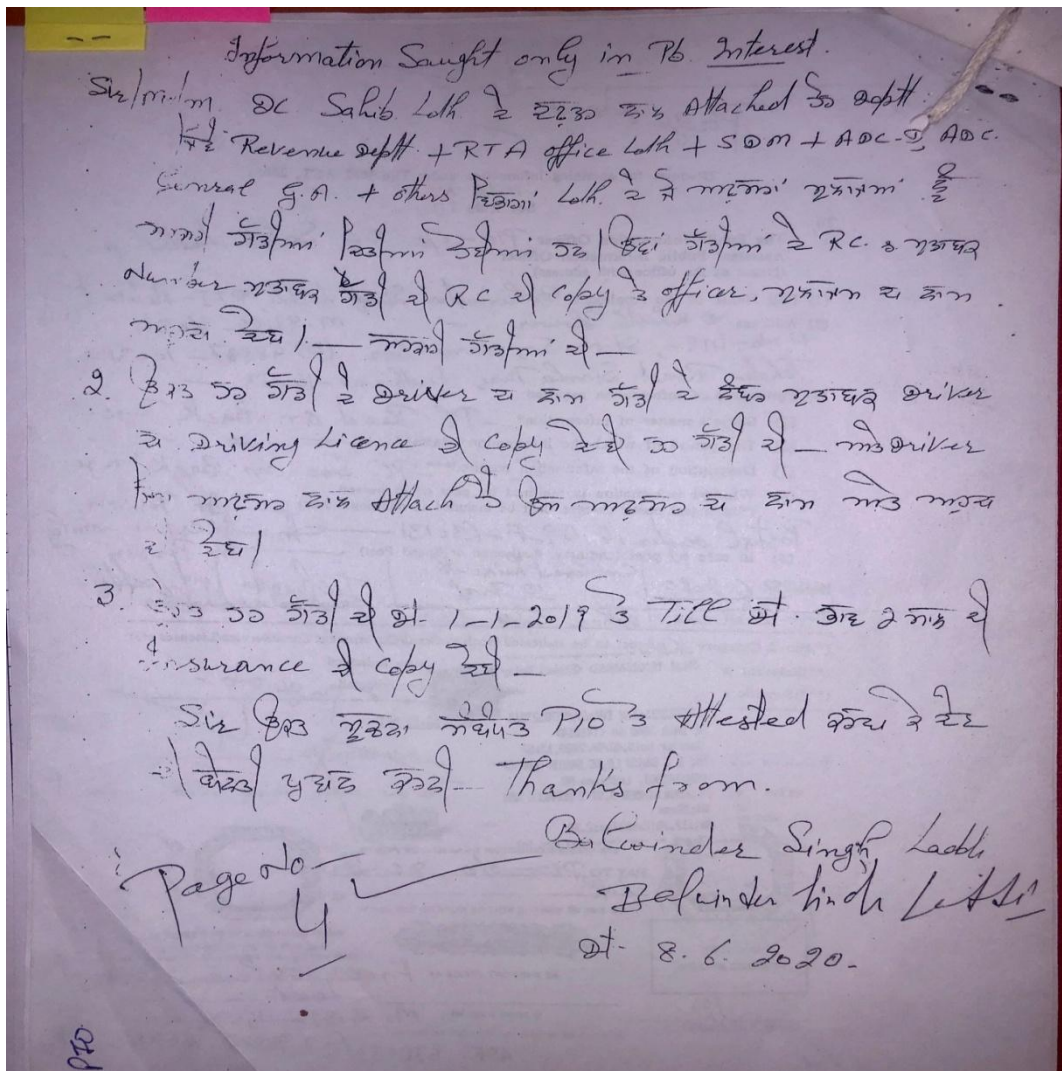 Information Sought only in Pb Interest.
Sir/m/m. DC Sahib Ldh. ਦੇ ਦਫ਼ਤਰ ਨਾਲ Attached ਹਰ Deptt.
ਜਿਵੇਂ Revenue Deptt. + RTA office Ldh + SDM + ADC-D, ADC.
General G.A. + others ਵਿਭਾਗਾਂ Ldh. ਦੇ ਜੋ ਅਫਸਰਾਂ ਮੁਲਾਜਮਾਂ ਨੂੰ
ਸਰਕਾਰੀ ਗੱਡੀਆਂ ਦਿੱਤੀਆਂ ਹੋਈਆਂ ਹਨ। ਉਹਨਾਂ ਗੱਡੀਆਂ ਦੇ RC. ਮੁਤਾਬਕ
Number ਮੁਤਾਬਕ ਗੱਡੀ ਦੀ RC ਦੀ Copy ਤੇ officer, ਮੁਲਾਜਮ ਦਾ ਨਾਮ
ਅਹੁਦਾ ਦੇਣਾ। — ਸਰਕਾਰੀ ਗੱਡੀਆਂ ਦੀ —
2. ਉਕਤ ਹਰ ਗੱਡੀ ਦੇ Driver ਦਾ ਨਾਮ ਗੱਡੀ ਦੇ ਨੰਬਰ ਮੁਤਾਬਕ Driver
ਦਾ Driving Licence ਦੀ Copy ਦੇਣੀ ਹਰ ਗੱਡੀ ਦੀ — ਅਤੇ Driver
ਜਿਸ ਅਫਸਰ ਨਾਲ Attach ਹੈ ਉਸ ਅਫਸਰ ਦਾ ਨਾਮ ਅਤੇ ਅਹੁਦਾ
ਦੇਣਾ।
3. ਉਕਤ ਹਰ ਗੱਡੀ ਦੀ ਮਿਤੀ 1-1-2019 ਤੋਂ Till ਮਿਤੀ 2 ਸਾਲ ਦੀ
Insurance ਦੀ Copy ਦੇਣੀ —
Sir ਉਕਤ ਸੂਚਨਾ ਸੰਬੰਧਤ PIO ਤੋਂ Attested ਕਰਵਾ ਕੇ ਦੇਣ
ਦੀ ਖੇਚਲ ਕਰਨੀ — Thanks from.
Balwinder Singh Laddi
Page No-
4
Belwinder Singh
8.6.2020-
PIO